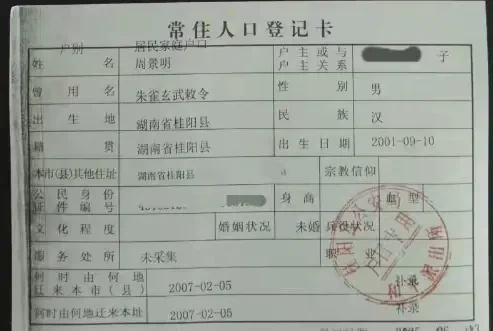 常住人口登记卡
户别 居民家庭户口 户主或与
姓名 周景明 户主关系 子
曾用名 朱雀玄武敕令 性别 男
出生地 湖南省桂阳县 民族 汉
籍贯 湖南省桂阳县 出生日期 2001-09-10
本市(县)其他住址 湖南省桂阳县 宗教信仰
公民身份 身高 血型
证件编号
文化程度 婚姻状况 未婚 兵役状况
服务处所 未采集 职业
何时由何地
迁来本市(县) 2007-02-05 补录
何时由何地迁来本址 2007-02-05 补录
户口专用